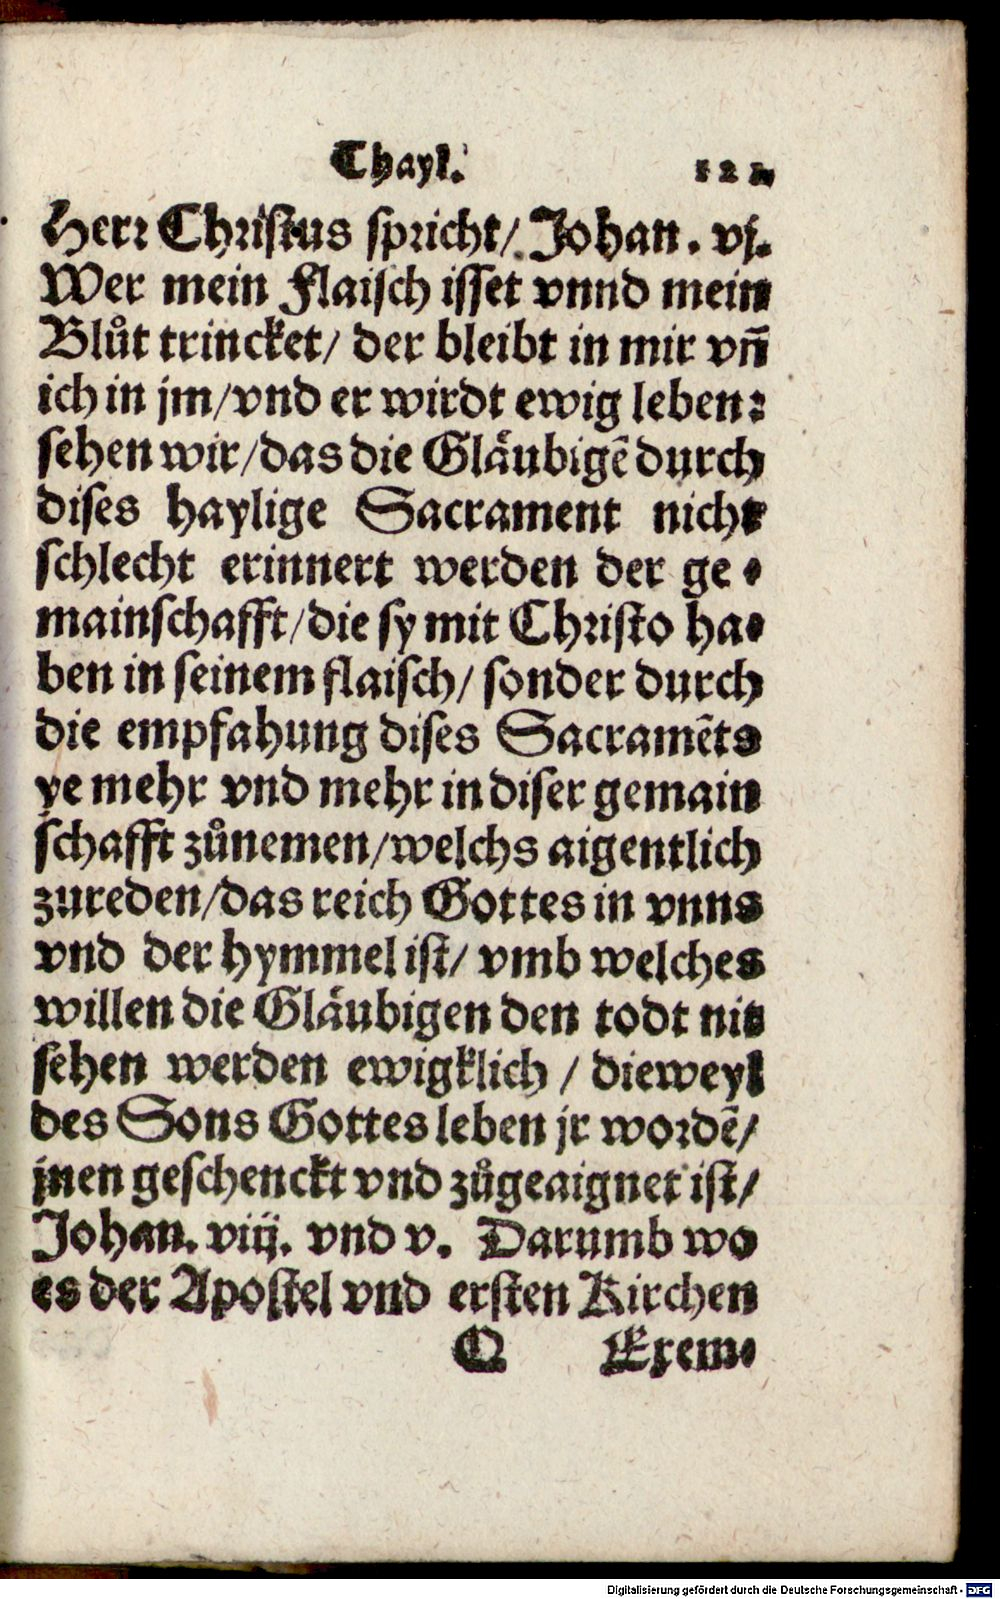 Thayl.
Herr Christus spricht/ Johan. vj.
Wer mein Flaisch isset vnnd mein
Blůt trincket/ der bleibt in mir vñ
ich in jm/ vnd er wirdt ewig leben:
sehen wir/ das die Gläubigē durch
dises haylige Sacrament nicht
schlecht erinnert werden der ge-
mainschafft/ die sy mit Christo ha-
ben in seinem flaisch/ sonder durch
die empfahung dises Sacramēts
ye mehr vnd mehr in diser gemain
schafft zůnemen/ welchs aigentlich
zureden/ das reich Gottes in vnns
vnd der hymmel ist/ vmb welches
willen die Gläubigen den todt nit
sehen werden ewigklich / dieweyl
des Sons Gottes leben jr wordē/
jnen geschenckt vnd zůgeaignet ist/
Johan. viij. vnd v. Darumb wo
es der Apostel vnd ersten Kirchen
Q Exem-
Digitalisierung gefördert durch die Deutsche Forschungsgemeinschaft - DFG